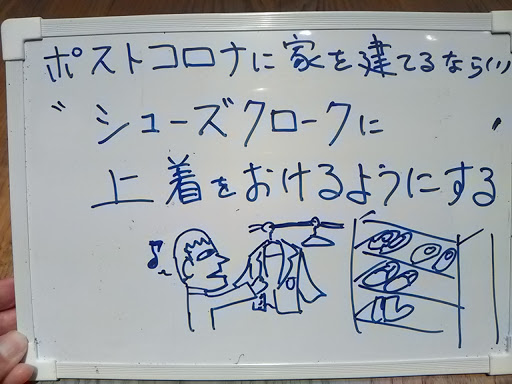 ポストコロナに家を建てるなら(1)
シューズクロークに
上着をおけるようにする